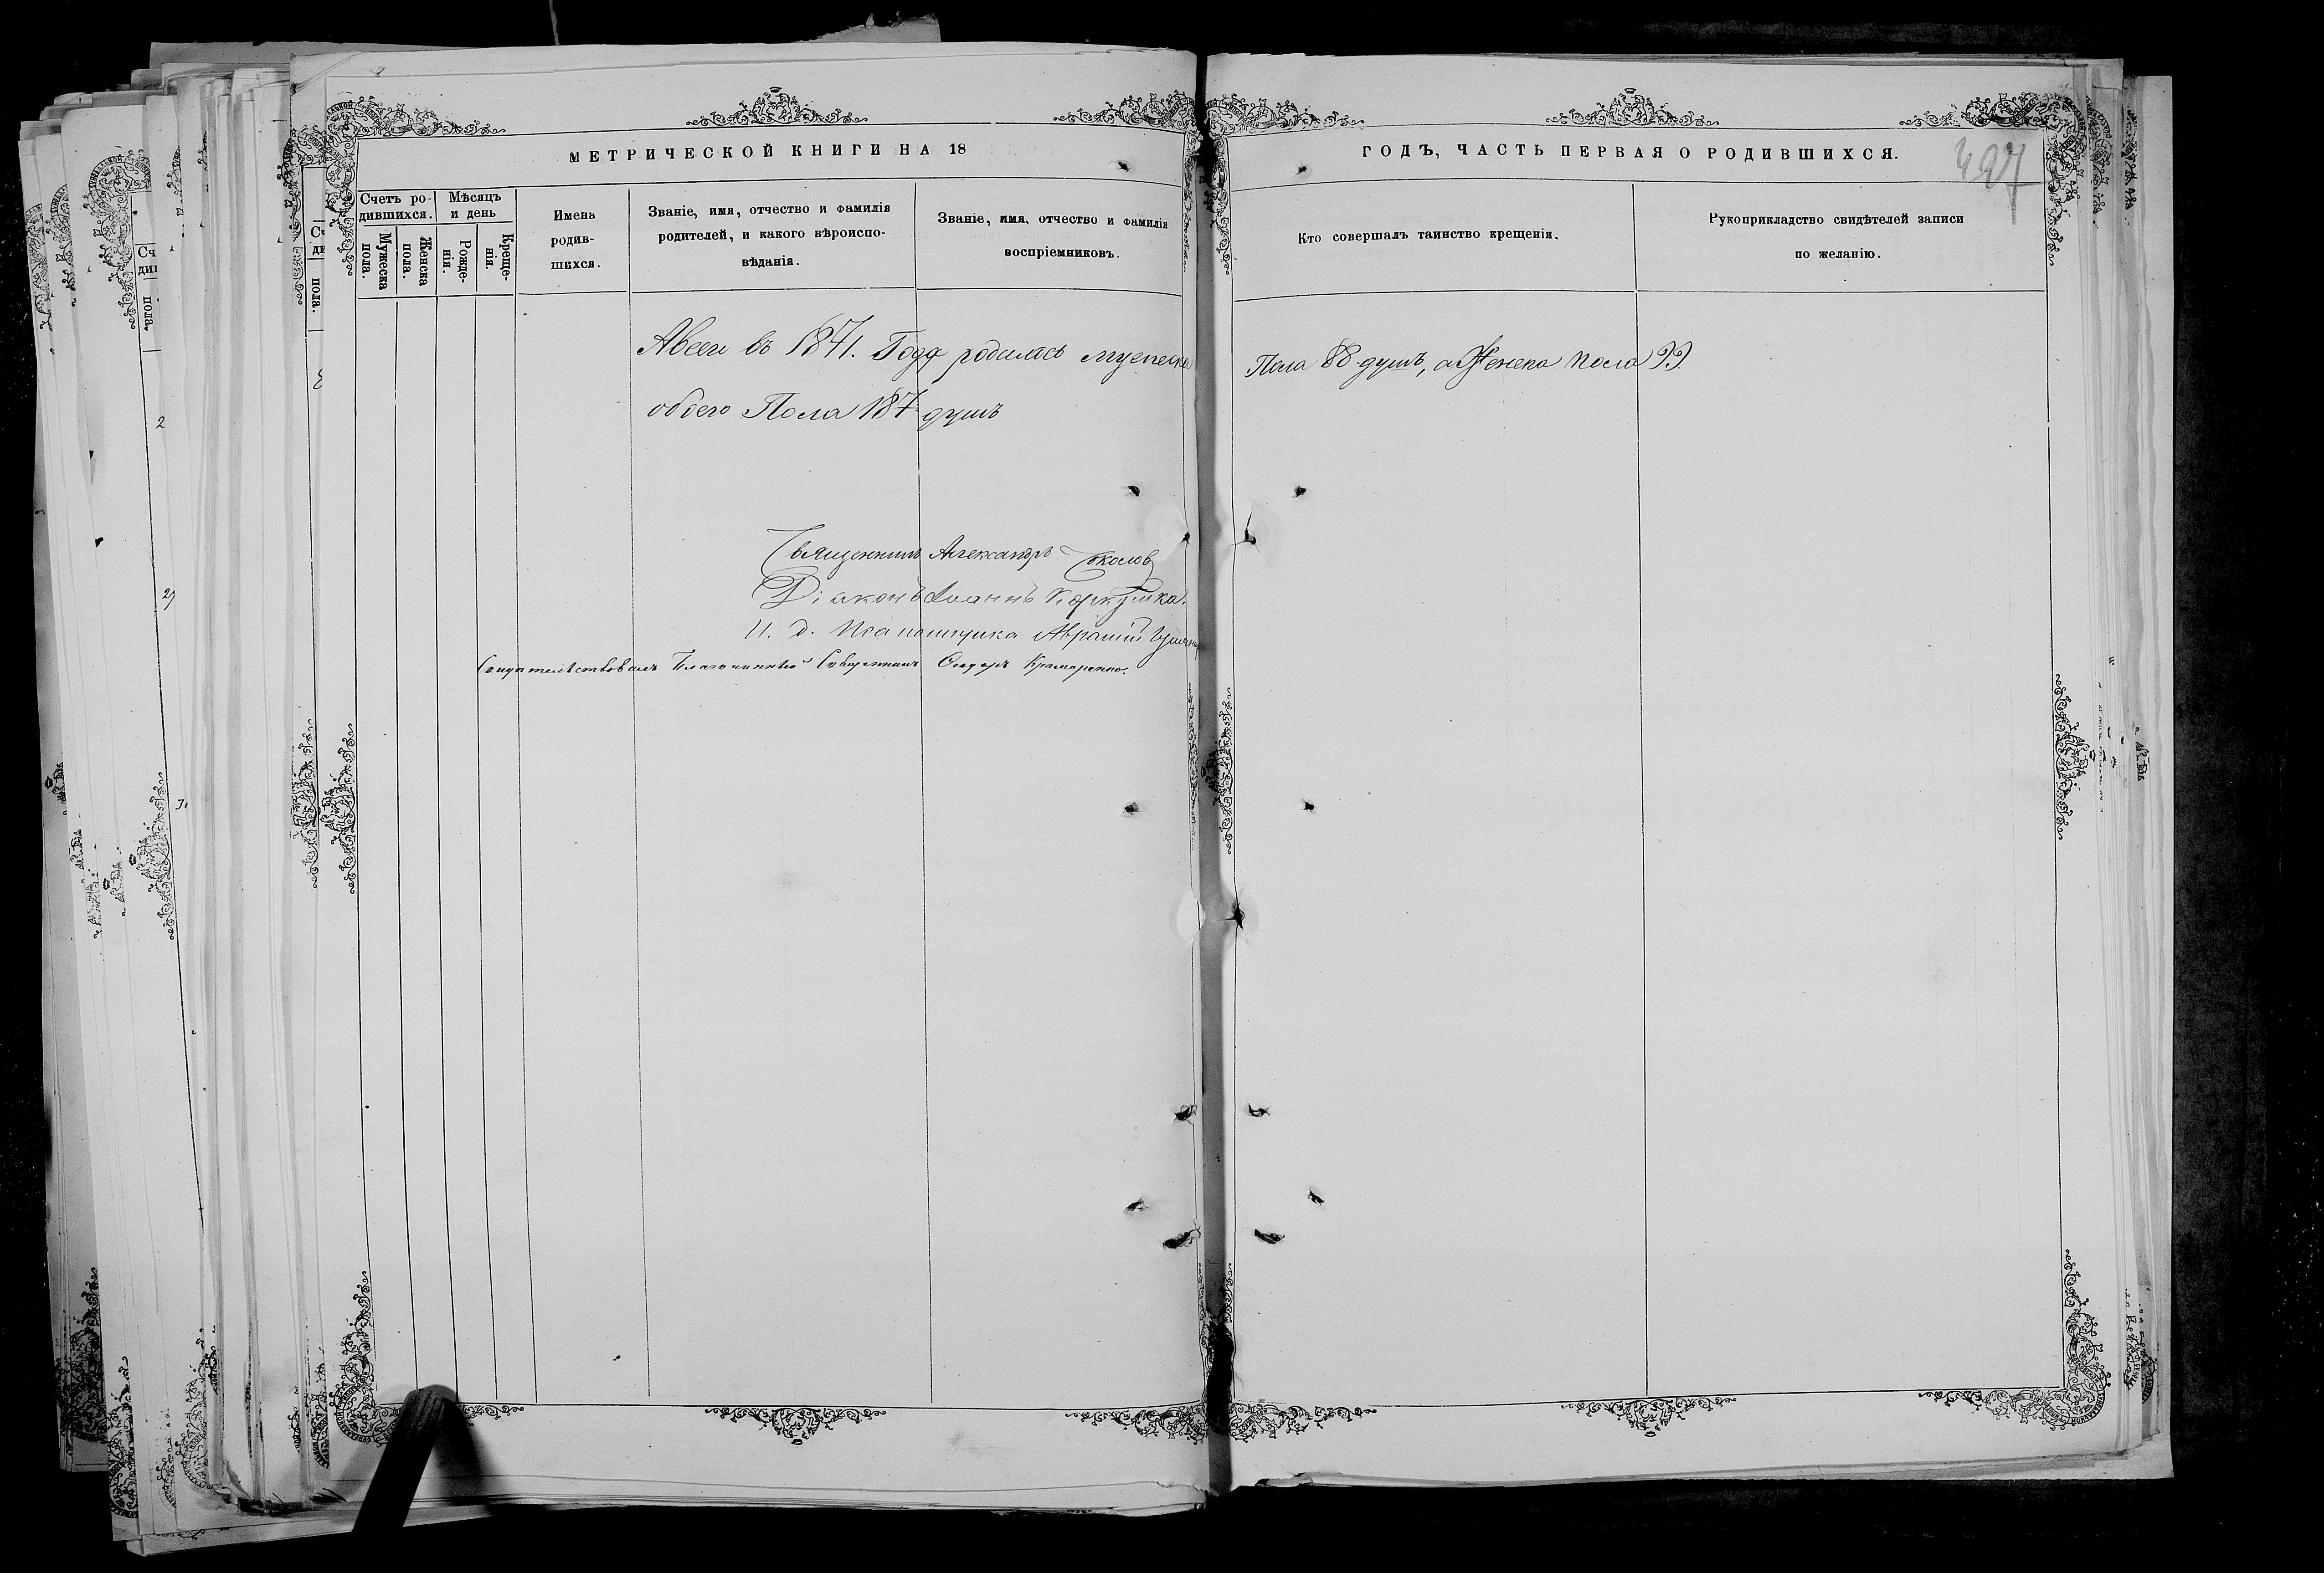 МЕТРИЧЕСКОЙ КНИГИ НА 18
ГОДЪ, ЧАСТЬ ПЕРВАЯ О РОДИВШИХСЯ.
497
Счетъ ро-
дившихся.
Мужеска
пола.
Женска
пола.
Мѣсяцъ
и день
Рожде-
нія.
Креще-
нія.
Имена
родив-
шихся.
Званіе, имя, отчество и фамилія
родителей, и какого вѣроиспо-
вѣданія.
Званіе, имя, отчество и фамилія
воспріемниковъ.
Кто совершалъ таинство крещенія.
Рукоприкладство свидѣтелей записи
по желанію.
Авсего въ 1871. Году родилось мужеска
Пола 88 душъ, а Женска пола 99.
обоего Пола 187 душъ
Священникъ Александръ Соколовъ
Діаконъ Іоаннъ Коркушка.
И. д. Псаломщика
Свидѣтельствовалъ Благочинный Священникъ Ѳеодоръ Крамаренко.